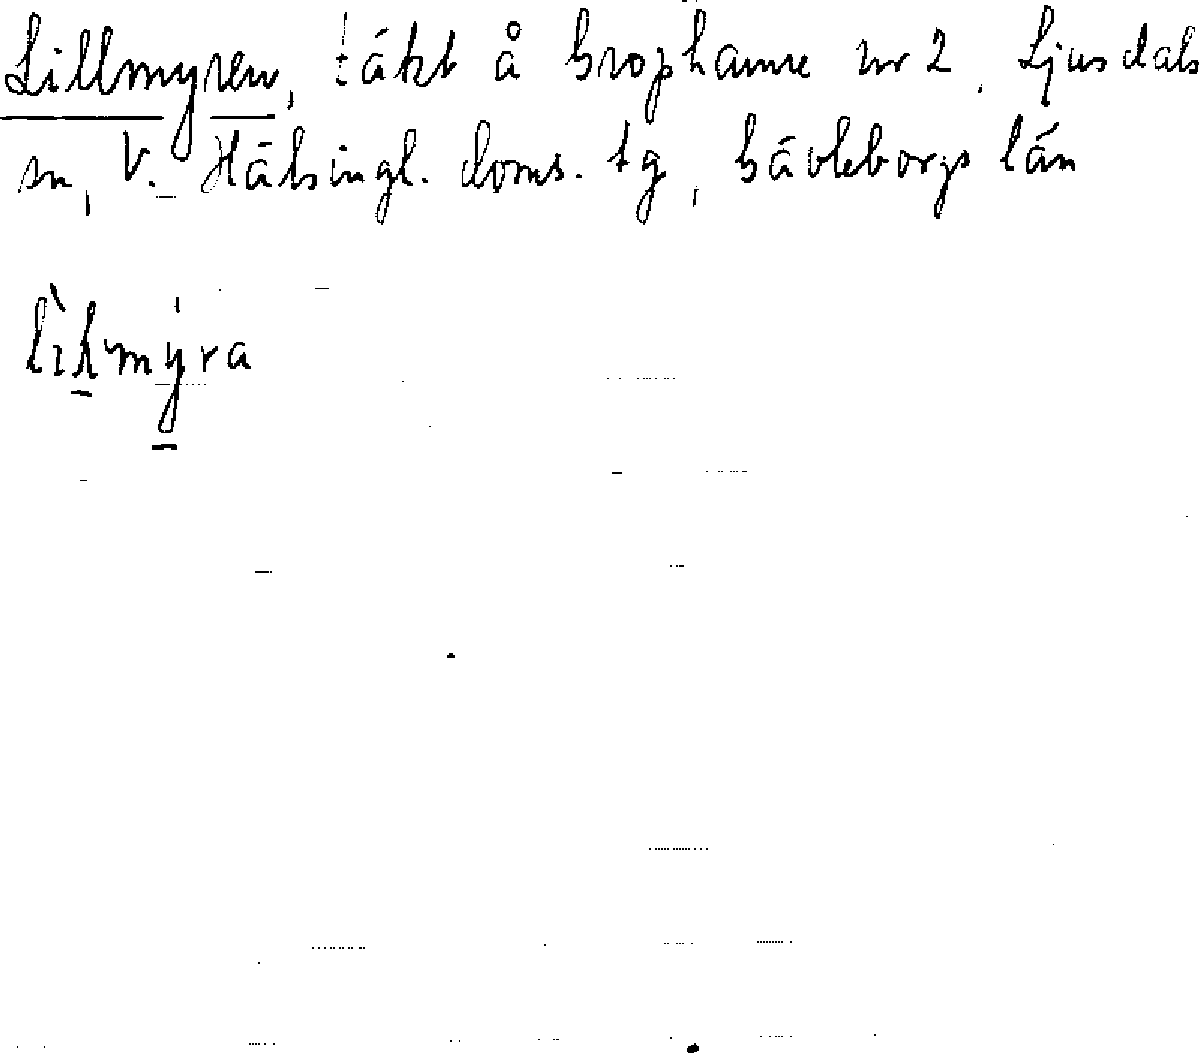 Lillmyren, täkt å Grophamre nr 2, Ljusdals
sn, V. Hälsingl. doms. tg, Gävleborgs län